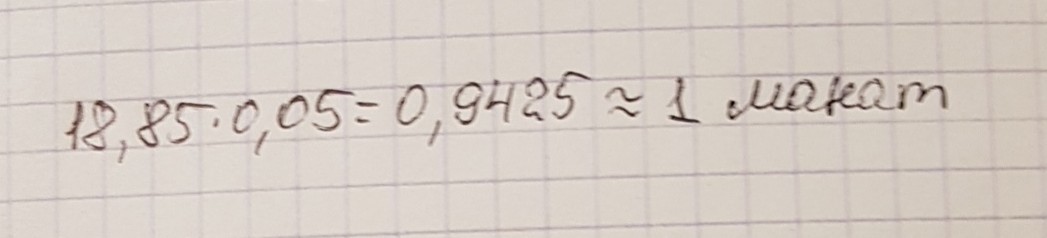 18,85·0,05=0,9425≈1 макат